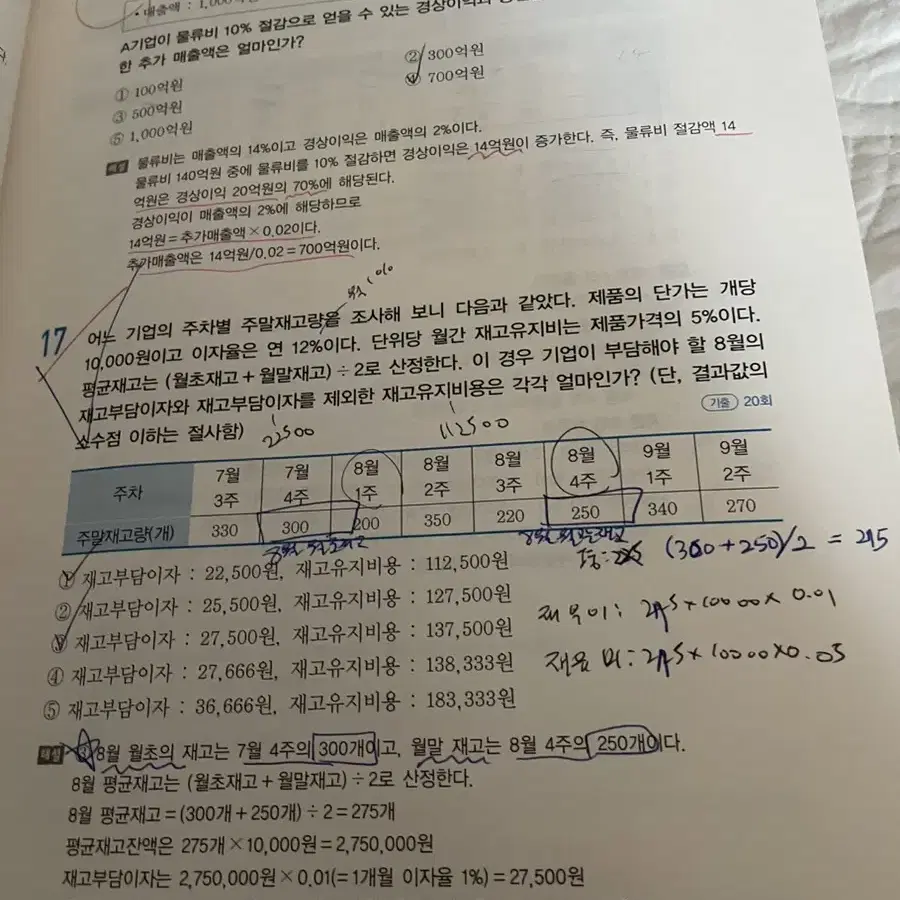 • 매출액 : 1,00
A기업이 물류비 10% 절감으로 얻을 수 있는 경상이익과
한 추가 매출액은 얼마인가?
① 100억원
② 300억원
③ 500억원
④ 700억원
⑤ 1,000억원
해설 물류비는 매출액의 14%이고 경상이익은 매출액의 2%이다.
물류비 140억원 중에 물류비를 10% 절감하면 경상이익은 14억원이 증가한다. 즉, 물류비 절감액 14
억원은 경상이익 20억원의 70%에 해당된다.
경상이익이 매출액의 2%에 해당하므로
14억원=추가매출액×0.02이다.
추가매출액은 14억원/0.02=700억원이다.
17 어느 기업의 주차별 주말재고량을 조사해 보니 다음과 같았다. 제품의 단가는 개당
10,000원이고 이자율은 연 12%이다. 단위당 월간 재고유지비는 제품가격의 5%이다.
평균재고는 (월초재고+월말재고)÷2로 산정한다. 이 경우 기업이 부담해야 할 8월의
재고부담이자와 재고부담이자를 제외한 재고유지비용은 각각 얼마인가? (단, 결과값의
소수점 이하는 절사함)
기출 20회
22500
112500
주차 7월 3주 7월 4주 8월 1주 8월 2주 8월 3주 8월 4주 9월 1주 9월 2주
주말재고량(개) 330 300 200 350 220 250 340 270
(300+250)/2 = 275
① 재고부담이자 : 22,500원, 재고유지비용 : 112,500원
② 재고부담이자 : 25,500원, 재고유지비용 : 127,500원
275×10000×0.01
③ 재고부담이자 : 27,500원, 재고유지비용 : 137,500원
275×10000×0.05
④ 재고부담이자 : 27,666원, 재고유지비용 : 138,333원
⑤ 재고부담이자 : 36,666원, 재고유지비용 : 183,333원
해설 ③ 8월 월초의 재고는 7월 4주의 300개이고, 월말 재고는 8월 4주의 250개이다.
8월 평균재고는 (월초재고+월말재고)÷2로 산정한다.
8월 평균재고=(300개+250개)÷2=275개
평균재고잔액은 275개×10,000원=2,750,000원
재고부담이자는 2,750,000원×0.01(=1개월 이자율 1%)=27,500원